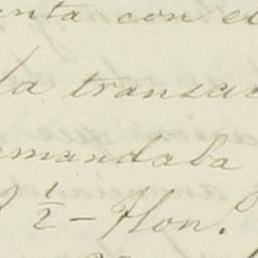 enta con el
la transac
emandaba
1/2 - Hon.